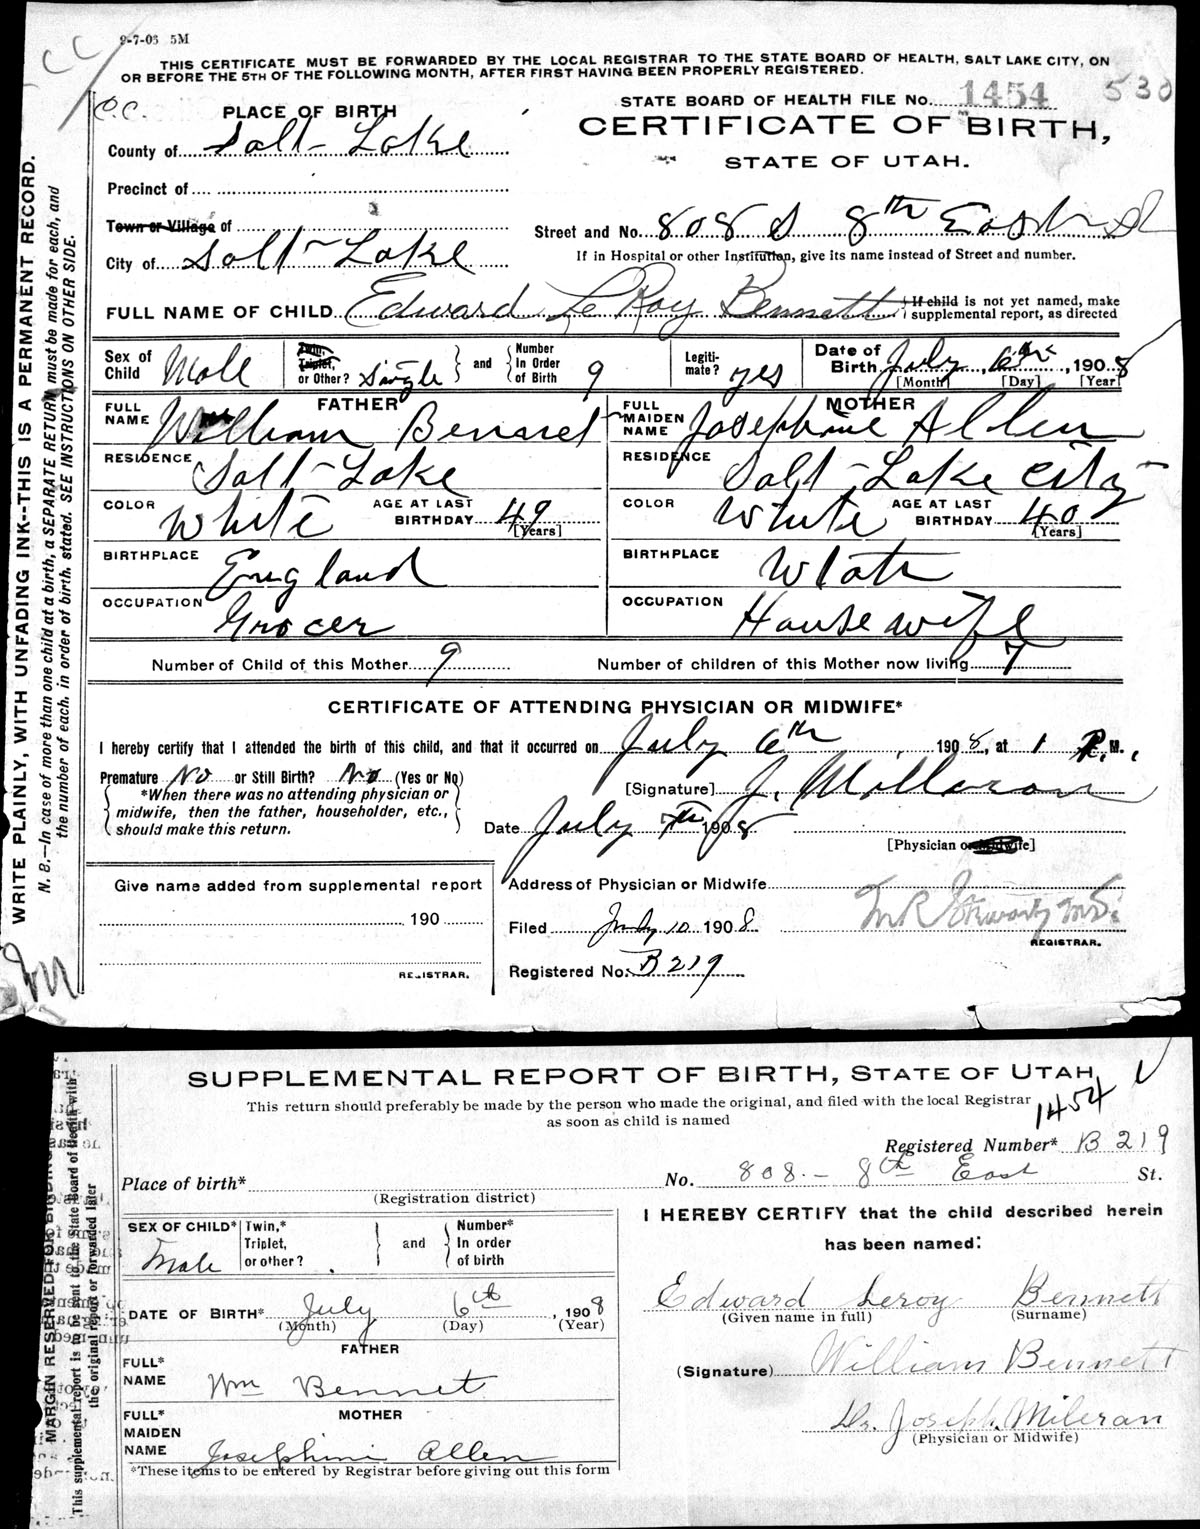 9-7-03 5M
THIS CERTIFICATE MUST BE FORWARDED BY THE LOCAL REGISTRAR TO THE STATE BOARD OF HEALTH, SALT LAKE CITY, ON
OR BEFORE THE 5TH OF THE FOLLOWING MONTH, AFTER FIRST HAVING BEEN PROPERLY REGISTERED.
O.C.
PLACE OF BIRTH
STATE BOARD OF HEALTH FILE NO. 1454 530
CERTIFICATE OF BIRTH,
STATE OF UTAH.
County of Salt Lake
Precinct of
Town or Village of
City of Salt Lake
Street and No. 808 S 8th East St
If in Hospital or other Institution, give its name instead of Street and number.
FULL NAME OF CHILD Edward Le Roy Bennett
If child is not yet named, make
supplemental report, as directed
Sex of Child Male
Twin, Triplet, or Other? Single and Number In Order of Birth 9
Legitimate? yes
Date of Birth July 6th, 1908
[Month] [Day] [Year]
FATHER
FULL NAME William Bennet
RESIDENCE Salt Lake
COLOR White AGE AT LAST BIRTHDAY 49 [Years]
BIRTHPLACE England
OCCUPATION Grocer
MOTHER
FULL MAIDEN NAME Josephine Allen
RESIDENCE Salt Lake City
COLOR White AGE AT LAST BIRTHDAY 40 [Years]
BIRTHPLACE Utah
OCCUPATION Housewife
Number of Child of this Mother 9 Number of children of this Mother now living 7
CERTIFICATE OF ATTENDING PHYSICIAN OR MIDWIFE*
I hereby certify that I attended the birth of this child, and that it occurred on July 6th, 1908, at 1 P.M.
Premature No or Still Birth? No (Yes or No)
*When there was no attending physician or
midwife, then the father, householder, etc.,
should make this return.
[Signature] J. Milleran
Date July 7th 1908
[Physician or Midwife]
Give name added from supplemental report
190
REGISTRAR.
Address of Physician or Midwife
Filed July 10 1908
REGISTRAR.
Registered No. B219
WRITE PLAINLY, WITH UNFADING INK--THIS IS A PERMANENT RECORD.
N. B.—In case of more than one child at a birth, a SEPARATE RETURN must be made for each, and
the number of each, in order of birth, stated. SEE INSTRUCTIONS ON OTHER SIDE.
SUPPLEMENTAL REPORT OF BIRTH, STATE OF UTAH
This return should preferably be made by the person who made the original, and filed with the local Registrar
as soon as child is named
1454
Registered Number* B 219
Place of birth*
(Registration district)
No. 808 - 8th East St.
SEX OF CHILD* Male
Twin,* Triplet, or other? and Number* In order of birth
DATE OF BIRTH* July 6th, 1908
(Month) (Day) (Year)
FATHER
FULL* NAME Wm Bennet
MOTHER
FULL* MAIDEN NAME Josephine Allen
*These items to be entered by Registrar before giving out this form
I HEREBY CERTIFY that the child described herein
has been named:
Edward Leroy Bennett
(Given name in full) (Surname)
(Signature) William Bennett
Dr. Joseph Mileran
(Physician or Midwife)
MARGIN RESERVED FOR BINDING
This supplemental report is to be sent to the State Board of Health with
the original report or forwarded later